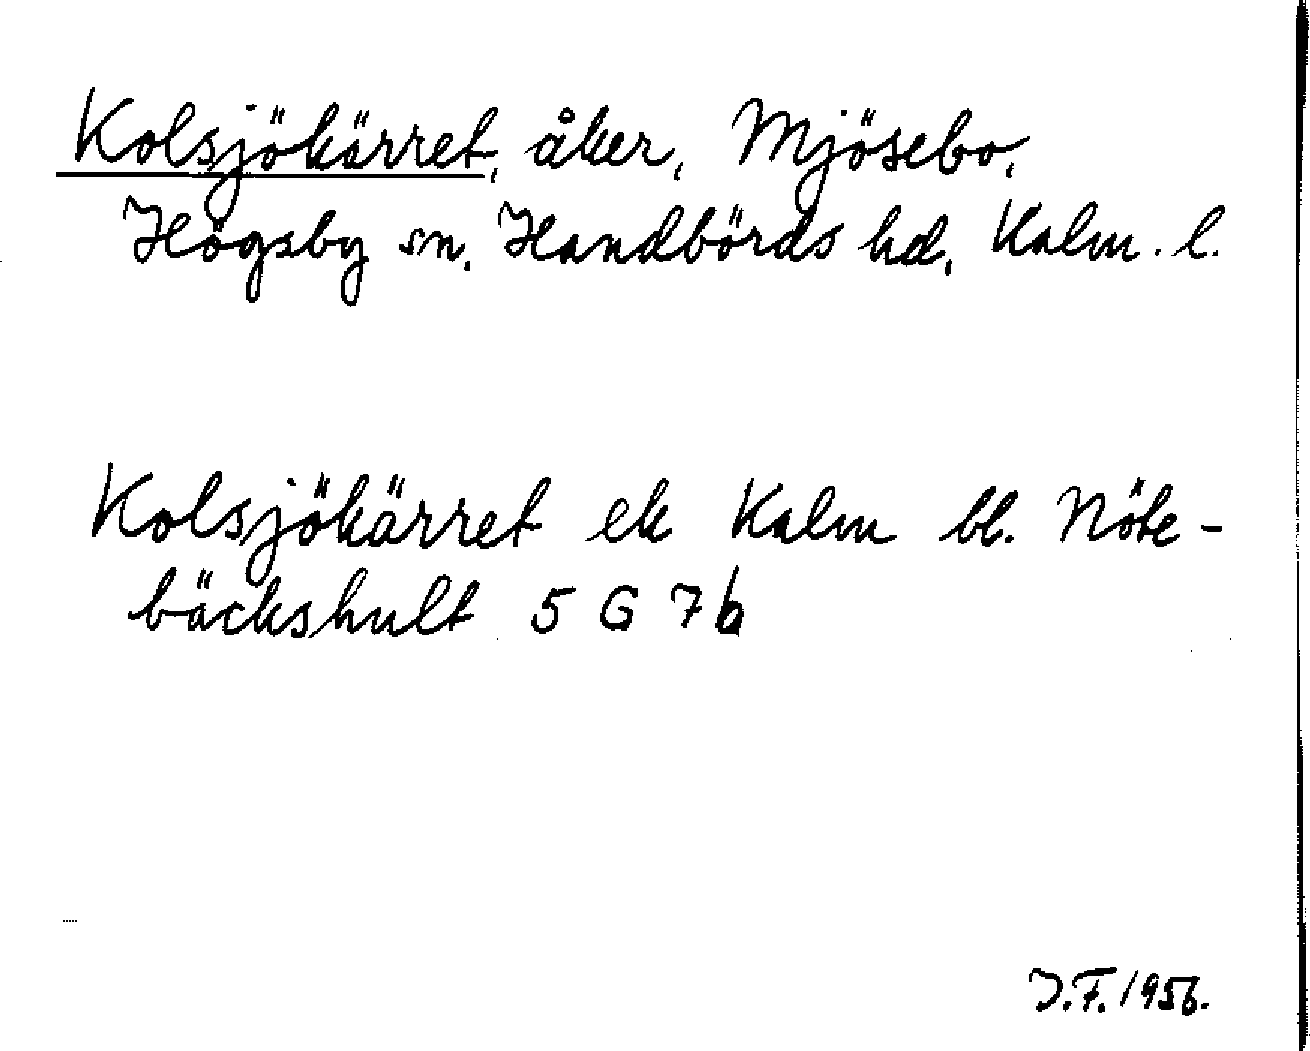 Kolsjökärret, åker, Mjösebo,
Högsby sn, Handbörds hd, Kalm. l.
Kolsjökärret ek Kalm bl. Nöte-
bäckshult 5 G 7 b
J.F. 1956.